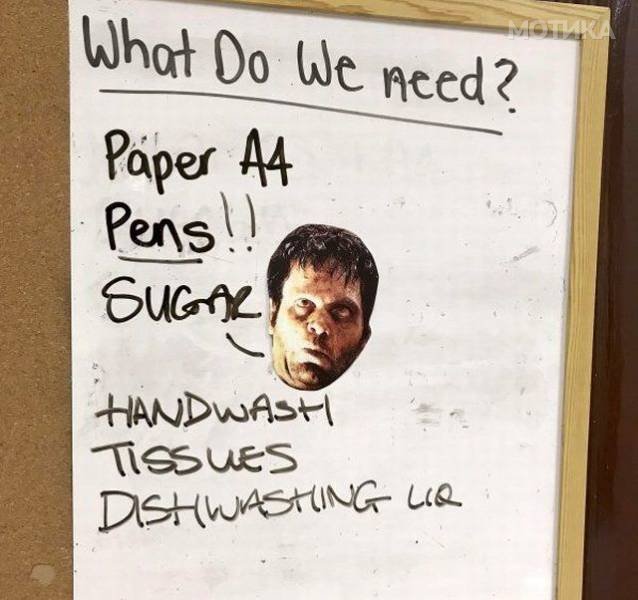 МОТИКА
What Do We need?
Paper A4
Pens!!
SUGAR
HANDWASH
TISSUES
DISHWASHING LIQ